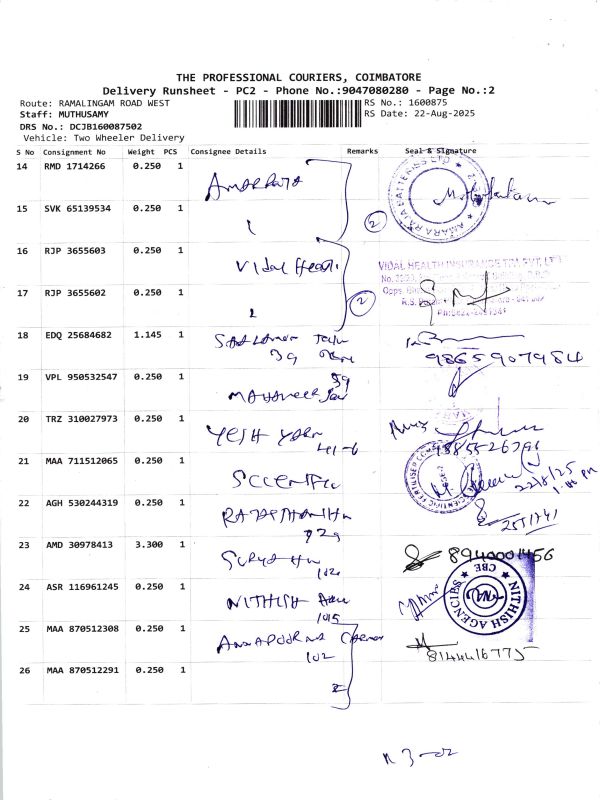 THE PROFESSIONAL COURIERS, COIMBATORE
Delivery Runsheet - PC2 - Phone No.:9047080280 - Page No.:2
Route: RAMALINGAM ROAD WEST
RS No.: 1600875
Staff: MUTHUSAMY
RS Date: 22-Aug-2025
DRS No.: DCJB160087502
Vehicle: Two Wheeler Delivery
S No Consignment No Weight PCS Consignee Details Remarks Seal & Signature
14 RMD 1714266 0.250 1
AMARA RAJA BATTERIES LTD
15 SVK 65139534 0.250 1
2
16 RJP 3655603 0.250 1 Vidal Health
VIDAL HEALTH INSURANCE TPA PVT. LTD
17 RJP 3655602 0.250 1
2
18 EDQ 25684682 1.145 1
39
9865907984
19 VPL 950532547 0.250 1
39
20 TRZ 310027973 0.250 1 YESH
41-6
21 MAA 711512065 0.250 1
22/8/25
22 AGH 530244319 0.250 1
23 AMD 30978413 3.300 1 SURYA
102
8940001456
24 ASR 116961245 0.250 1 NITHISH
1015
NITHISH AGENCIES CBE
25 MAA 870512308 0.250 1 ANNAPOORNA
102
8144416775
26 MAA 870512291 0.250 1